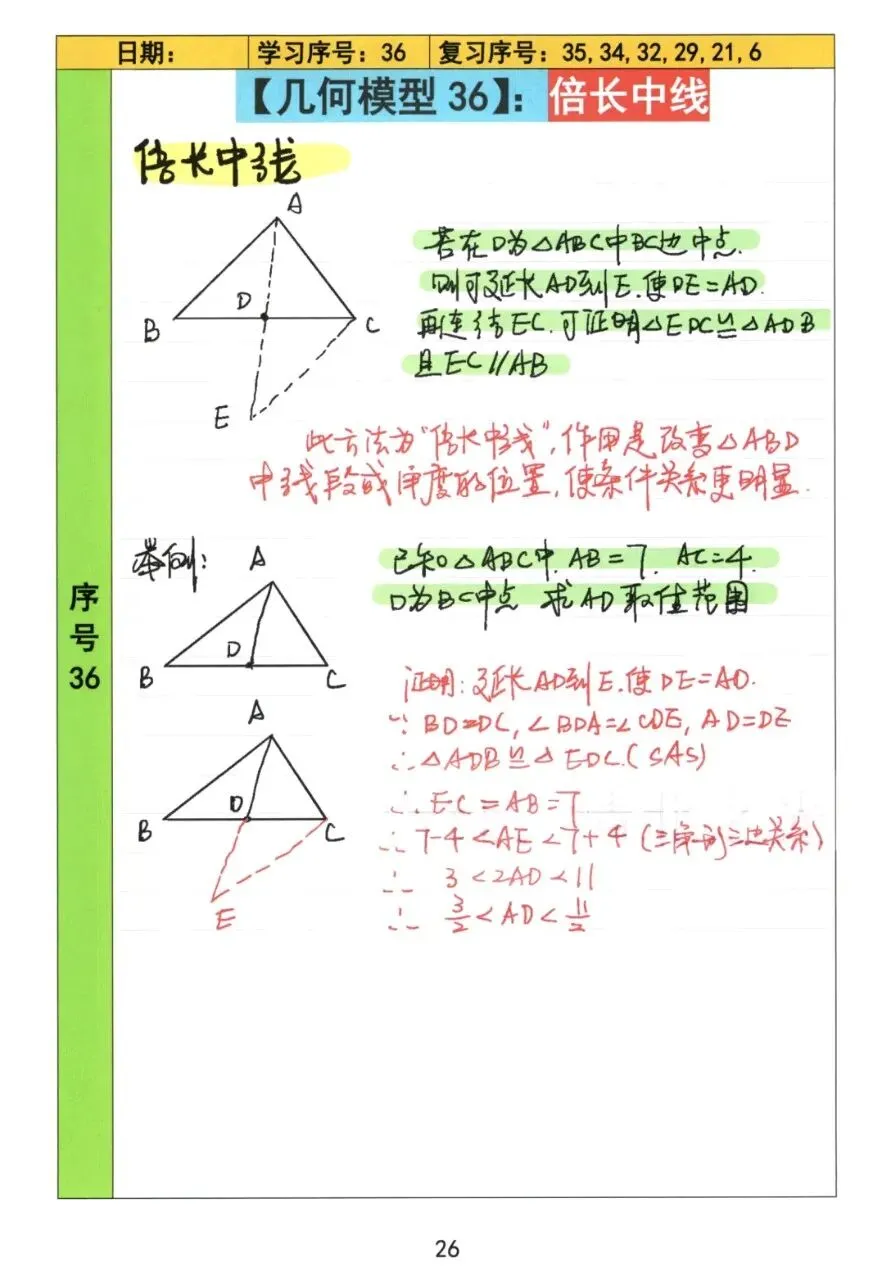 日期： 学习序号：36 复习序号：35,34,32,29,21,6
【几何模型 36】：倍长中线
倍长中线
A
B
D
C
E
若在D为△ABC中BC边中点.
则可延长AD到E.使DE=AD.
再连结EC.可证明△EDC≌△ADB
且EC∥AB
此方法为“倍长中线”,作用是改变△ABD
中线段或角度的位置,使条件关系更明显.
举例:
A
B
D
C
已知△ABC中.AB=7.AC=4.
D为BC中点 求AD取值范围
A
B
D
C
E
证明:延长AD到E.使DE=AD.
∵BD=DC,∠BDA=∠CDE,AD=DE
∴△ADB≌△EDC.(SAS)
∴EC=AB=7
∴7-4<AE<7+4(三角形三边关系)
∴ 3<2AD<11
∴ 3/2<AD<11/2
序
号
36
26